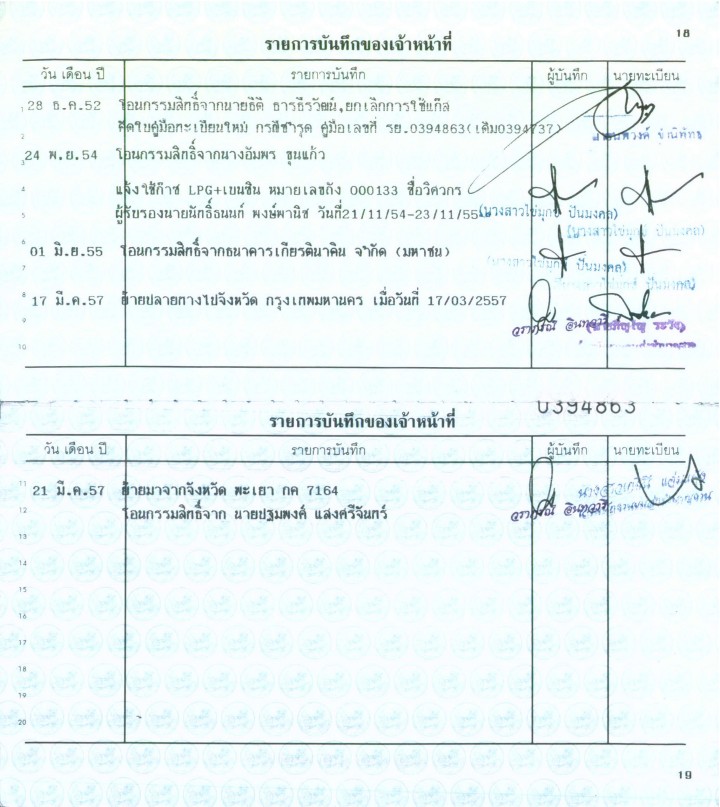 18
รายการบันทึกของเจ้าหน้าที่
วัน เดือน ปี รายการบันทึก ผู้บันทึก นายทะเบียน
1 28 ธ.ค.52 โอนกรรมสิทธิ์จากนายธิติ ธารธีรวัฒน์,ยกเลิกการใช้แก๊ส
2 คัดใบคู่มือทะเบียนใหม่ กรณีชำรุด คู่มือเลขที่ รย.0394863(เดิม0394737)
3 24 พ.ย.54 โอนกรรมสิทธิ์จากนางอัมพร ขุนแก้ว
4 แจ้งใช้ก๊าซ LPG+เบนซิน หมายเลขถัง 000133 ชื่อวิศวกร
5 ผู้รับรองนายนักธิ์ธนนท์ พงษ์พานิช วันที่21/11/54-23/11/55 (นางสาวไข่มุกข์ ปันมงคล)
(นางสาวไข่มุกข์ ปันมงคล)
6 01 มิ.ย.55 โอนกรรมสิทธิ์จากธนาคารเกียรตินาคิน จำกัด (มหาชน)
7 (นางสาวไข่มุกข์ ปันมงคล)
8 17 มี.ค.57 ย้ายปลายทางไปจังหวัด กรุงเทพมหานคร เมื่อวันที่ 17/03/2557
9
10
0394863
รายการบันทึกของเจ้าหน้าที่
วัน เดือน ปี รายการบันทึก ผู้บันทึก นายทะเบียน
11 21 มี.ค.57 ย้ายมาจากจังหวัด พะเยา กค 7164
12 โอนกรรมสิทธิ์จาก นายปฐมพงค์ แสงศรีจันทร์
13
14
15
16
17
18
19
20
19